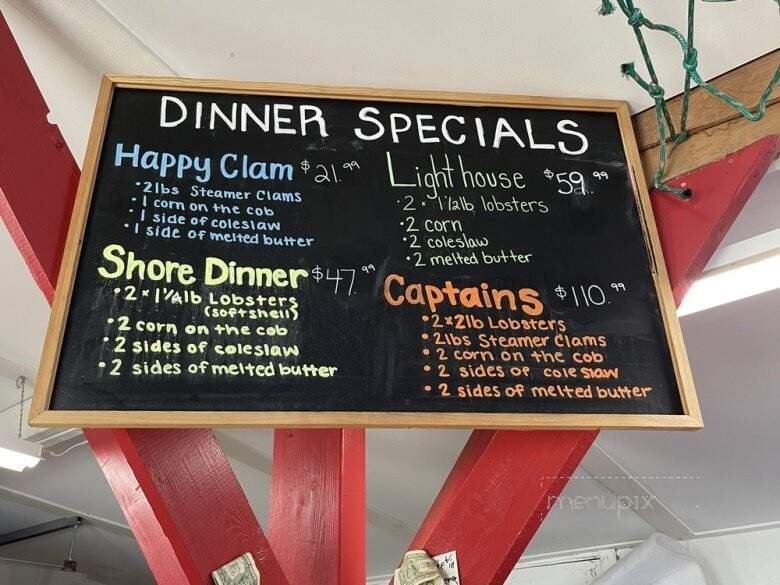 DINNER SPECIALS
Happy Clam $21.99
• 2lbs Steamer Clams
• 1 corn on the cob
• 1 side of coleslaw
• 1 side of melted butter
Shore Dinner $47.99
• 2 x 1 1/4 lb Lobsters
(softshell)
• 2 corn on the cob
• 2 sides of coleslaw
• 2 sides of melted butter
Lighthouse $59.99
• 2 x 1 1/2 lb lobsters
• 2 corn
• 2 coleslaw
• 2 melted butter
Captains $110.99
• 2x2lb Lobsters
• 2lbs Steamer Clams
• 2 corn on the cob
• 2 sides of coleslaw
• 2 sides of melted butter
menupix